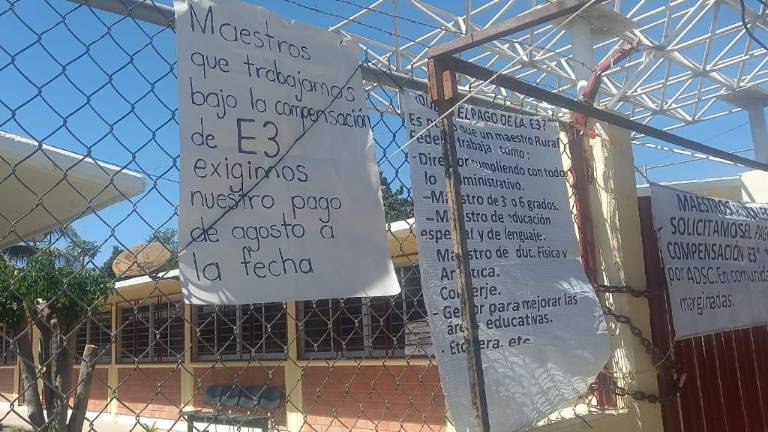 Maestros
que trabajamos
bajo la compensación
de E3
exigimos
nuestro pago
de agosto a
la fecha
EL PAGO DE LA E3?
Es que un maestro Rural
Feder trabaja como:
- Director cumpliendo con todo
lo administrativo.
- Maestro de 3 o 6 grados.
- Maestro de educación
especial y de lenguaje.
Maestro de duc. Física y
Ar ística.
Co erje.
- Ge or para mejorar las
áreas educativas.
- Etc era, etc.
MAESTROS
SOLICITAMOS EL PAG
COMPENSACIÓN E3"
por ADSC. En comunida
marginadas.